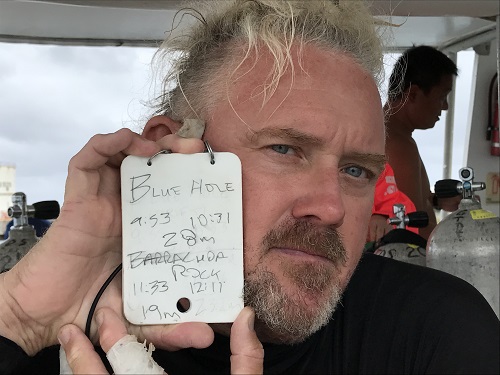 BLUE HOLE
9:53 10:31
28m
BARRACUDA
ROCK
11:33 12:11
19m